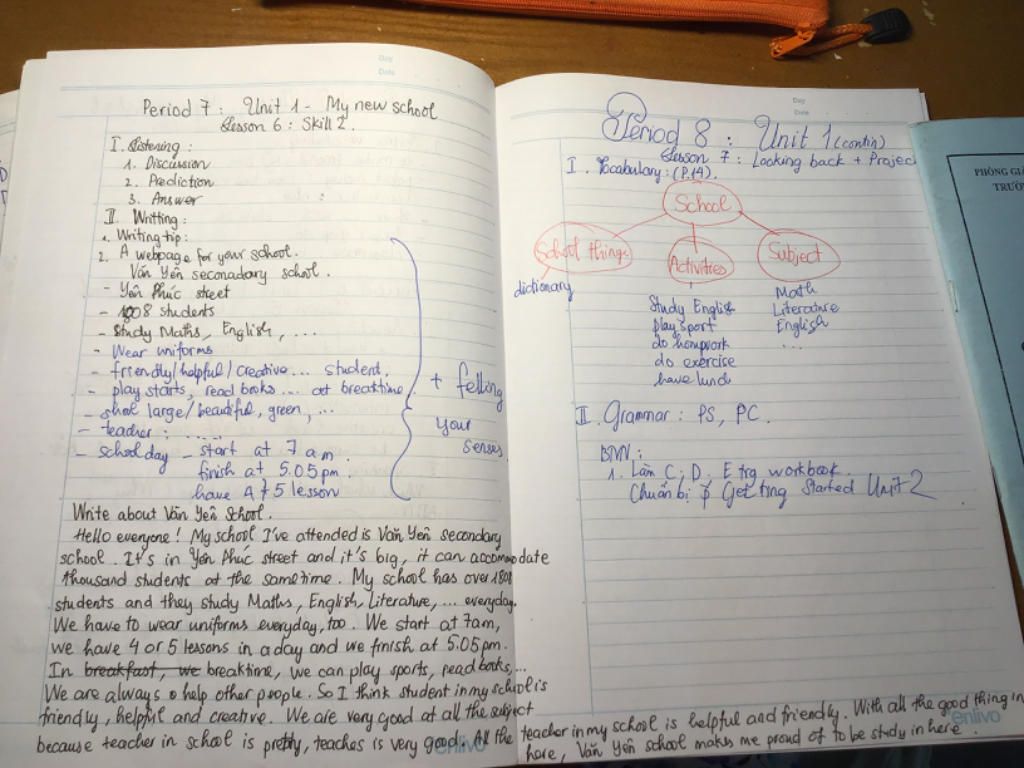 Day
Date
Period 7 : Unit 1 - My new school
Lesson 6 : Skill 2.
I. Listening :
1. Discussion
2. Prediction
3. Answer
II. Writting :
1. Writing tip :
2. A webpage for your school.
Văn Yên seconadary school.
- Yên Phúc street
- 1808 students
- Study Maths, English, ....
- Wear uniforms
- friendly/helpful/creative... student.
- play starts, read books... at breaktime.
- shool large/beautiful, green, ...
- teacher : .....
- school day - start at 7 am
finish at 5.05 pm
have 4 + 5 lesson
+ felling
your
senses
Write about Văn Yên School.
Hello everyone! My school I've attended is Văn Yên secondary
school. It's in Yên Phúc street and it's big, it can accomodate
thousand students at the same time. My school has over 1808
students and they study Maths, English, Literature, ... everyday.
We have to wear uniforms everyday, too. We start at 7am,
we have 4 or 5 lessons in a day and we finish at 5.05 pm.
In breakfast, we breaktime, we can play sports, read books,...
We are always help other people. So I think student in my school is
friendly, helpful and creative. We are very good at all the subject
because teacher in school is pretty, teaches is very good. All the teacher in my school is helpful and friendly. With all the good thing in
here, Văn Yên school makes me proud of to be study in here.
enlivo
Day
Date
Period 8 : Unit 1 (contin)
Lesson 7 : Looking back + Project
I. Vocabulary : (P.14).
School
School things
Activities
Subject
dictionary
Study English
play sport
do homework
do exercise
have lunch
Math
Literature
English
...
II. Grammar : PS, PC.
BTVN :
1. Làm C, D, E trg workbook.
Chuẩn bị Getting Started Unit 2
enlivo
PHÒNG GIÁ
TRƯỜ